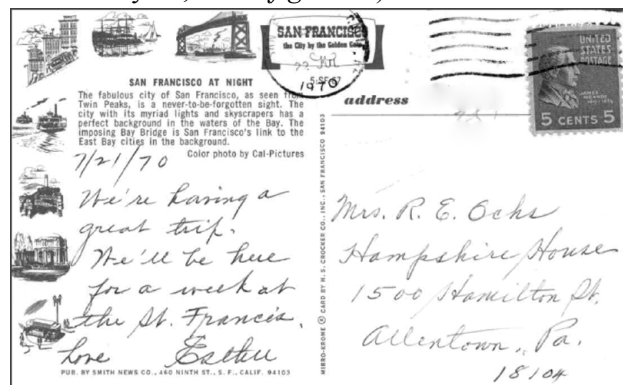 SAN FRANCISCO
the City by the Golden Gate
1970
SAN FRANCISCO AT NIGHT
The fabulous city of San Francisco, as seen from
Twin Peaks, is a never-to-be-forgotten sight. The
city with its myriad lights and skyscrapers has a
perfect background in the waters of the Bay. The
imposing Bay Bridge is San Francisco's link to the
East Bay cities in the background.
Color photo by Cal-Pictures
7/21/70
We're having a
great trip.
We'll be here
for a week at
the St. Francis.
Love Esther
PUB. BY SMITH NEWS CO., 460 NINTH ST., S. F., CALIF. 94103
MIRRO-KROME ® CARD BY H. S. CROCKER CO., INC., SAN FRANCISCO 94103
address
UNITED
STATES
POSTAGE
JAMES
MONROE
5 CENTS 5
Mrs. R. E. Ochs
Hampshire House
1500 Hamilton St.
Allentown, Pa.
18104